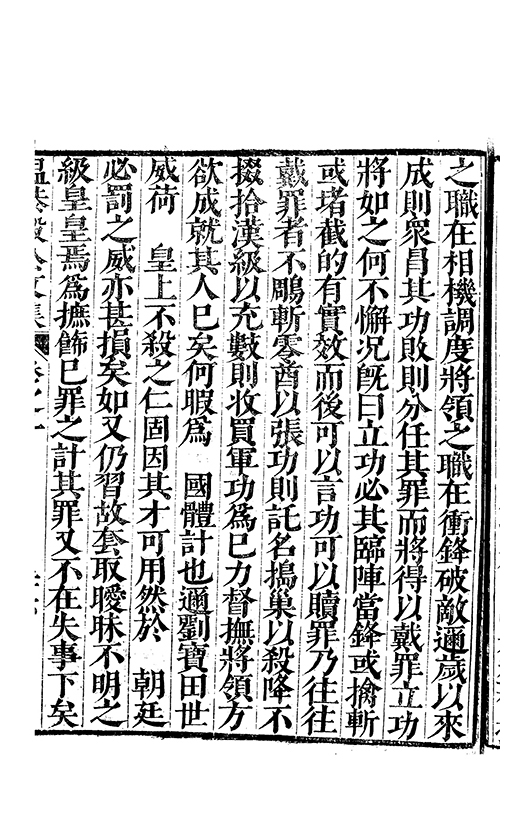 之職在相機調度將領之職在衝鋒破敵邇歲以來
成則衆昌其功敗則分任其罪而將得以戴罪立功
將如之何不懈况旣曰立功必其臨陣當鋒或擒斬
或堵截的有實效而後可以言功可以贖罪乃往往
戴罪者不鵰斬零酋以張功則託名搗巢以殺降不
掇拾漢級以充數則收買軍功爲巳力督撫將領方
欲成就其人巳矣何暇爲　國體計也邇劉寶田世
威荷　皇上不殺之仁固因其才可用然於　朝廷
必罰之威亦甚損矣如又仍習故套取曖昧不明之
級皇皇焉爲撫飾巳罪之計其罪又不在失事下矣
溫恭毅公文集　卷之一